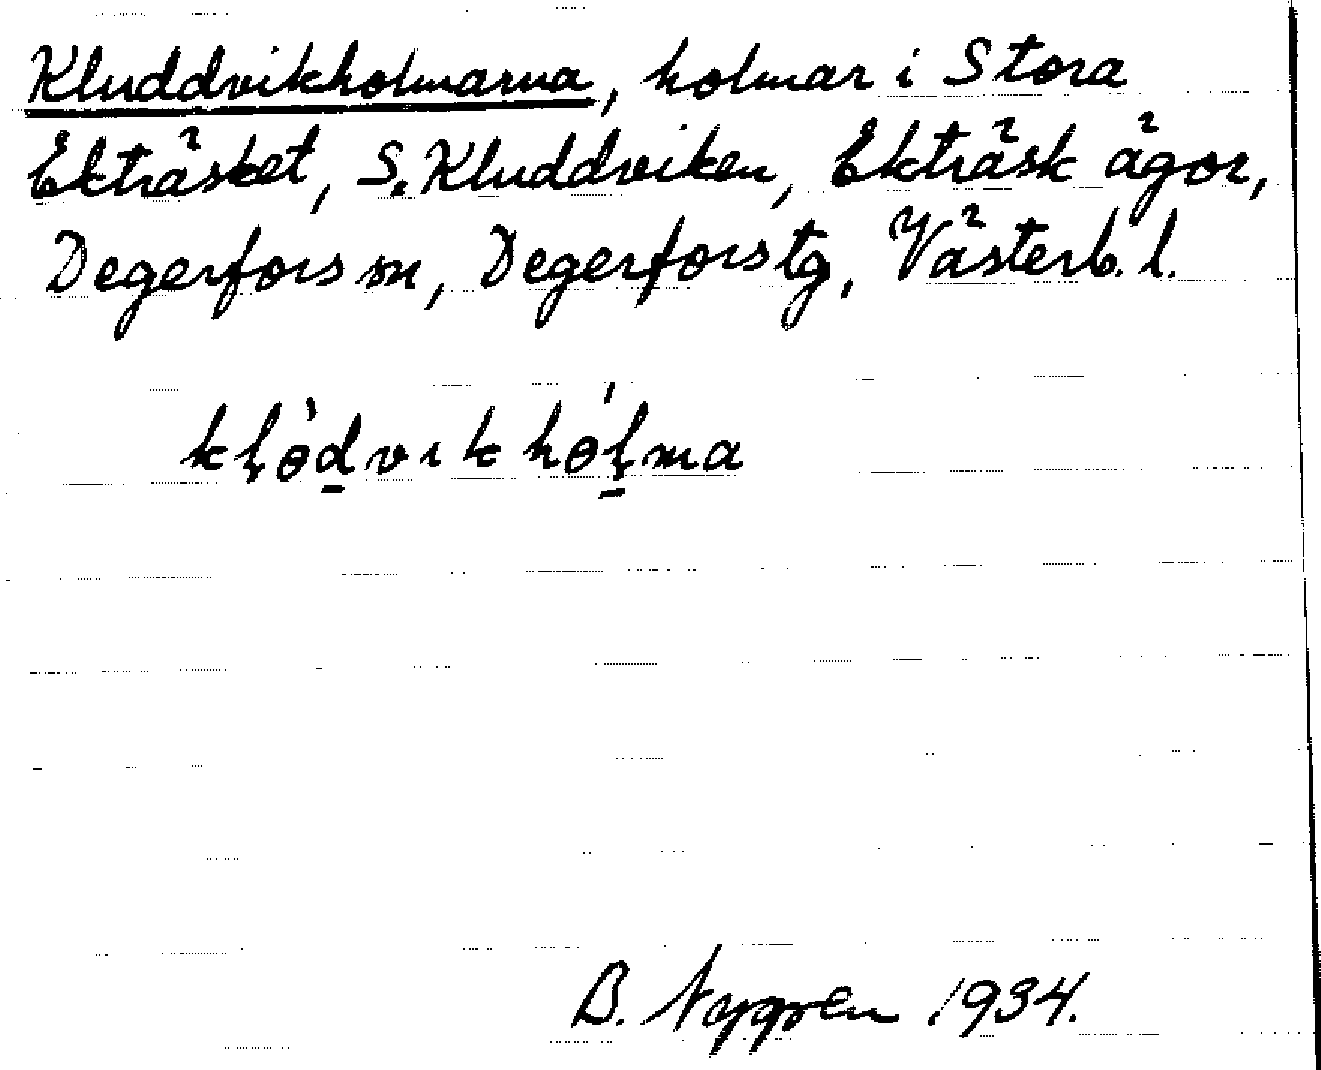 Kluddvikholmarna, holmar i Stora
Ekträsket, S. Kluddviken, Ekträsk ägor,
Degerfors sn, Degerfors tg, Västerb. l.
kḷөd̲vık hөḷ̲ma
B. Nygren 1934.